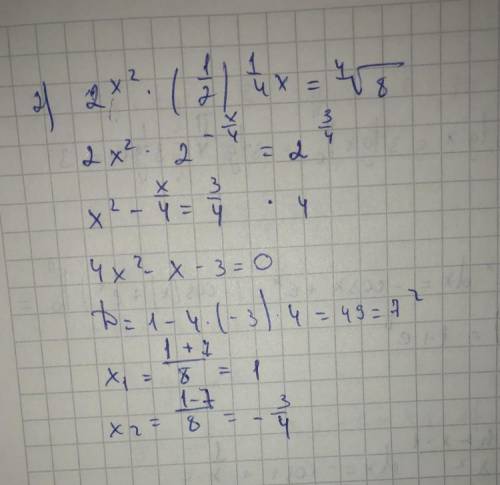 2) 2^{x^2} · (1/2)^{1/4 x} = ⁴√8
2x² · 2^{-x/4} = 2^{3/4}
x² - x/4 = 3/4 · 4
4x² - x - 3 = 0
D = 1 - 4 · (-3) · 4 = 49 = 7²
x₁ = (1+7)/8 = 1
x₂ = (1-7)/8 = -3/4